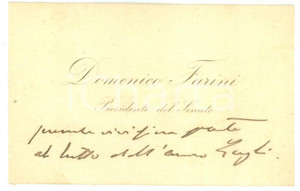 Domenico Farini
Presidente del Senato
prende parte
al lutto dell'amico